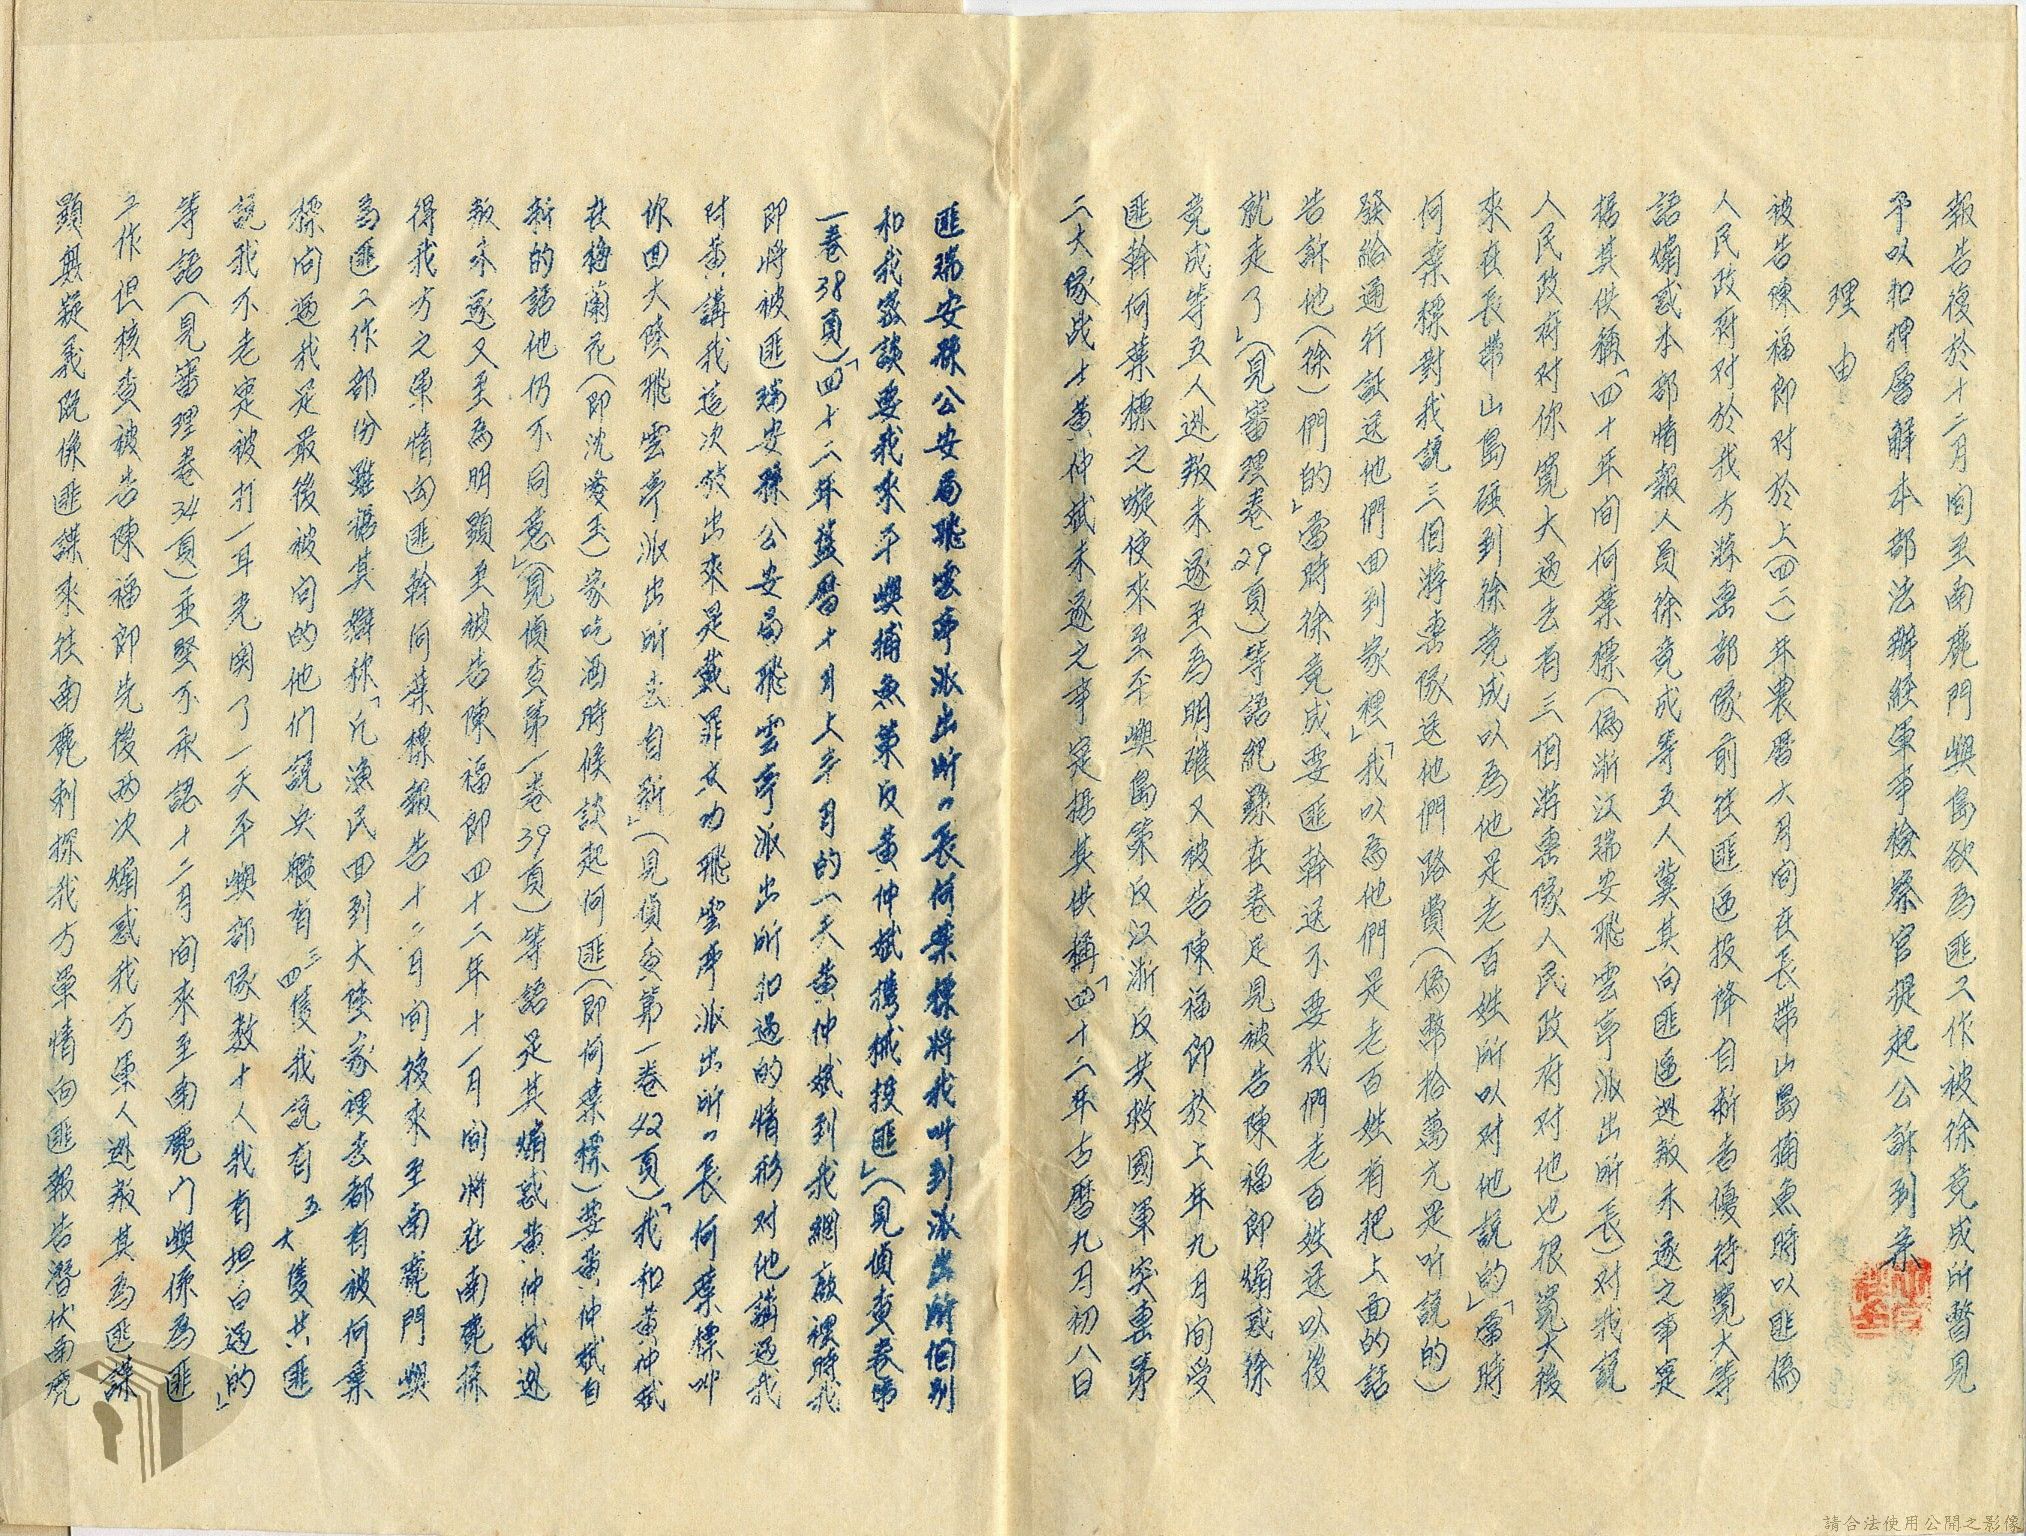 報告復於十二月间至南麂門嶼島欲為匪工作被徐竞成所瞥見
予以扣押層解本部法辦經軍事檢察官提起公訴到案
理由
被告陳福郎对於上(四二)年農曆六月间在長帶山島捕魚時以匪偽
人民政府对於我方游擊部隊前往匪區投降自新者優待寬大等
語煽惑本部情報人員徐竞成等五人冀其向匪區逃叛未遂之事实
据其供稱「四十年间何葉標(偽浙江瑞安飛雲亭派出所長)对我説
人民政府对你寬大过去有三個游擊隊人民政府对他也很寬大後
來在長帶山島碰到徐竞成以為他是老百姓所以对他説的」「當時
何葉標對我説三個游擊隊送他們路費(偽幣拾萬元是听説的)
發給通行証送他們回到家裡」「我以為他們是老百姓有把上面的話
告訴他(徐)們的」當時徐竞成要匪幹送不要我們老百姓送以後
就走了」(見審理卷29頁)等語紀錄在卷足見被告陳福郎煽惑徐
竞成等五人逃叛未遂至為明確又被告陳福郎於上年九月间受
匪幹何葉標之嗾使來至平嶼島策反江浙反共救國軍突擊第
二大隊战士黄仲斌未遂之事实据其供稱「四十二年古曆九月初八日
匪瑞安縣公安局飛雲亭派出所〃長何葉標將我叫到派出所個別
和我密談要我來平嶼捕魚策反黄仲斌携械投匪」(見偵查卷第
一卷38頁)「四十二年舊曆十月上半月的一天黄仲斌到我網廠裡時我
即將被匪瑞安縣公安局飛雲亭派出所扣過的情形对他講過我
对黄講我這次放出來是戴罪立功飛雲亭派出所〃長何葉標叫
你回大陸飛雲亭派出所去自新」(見偵查第一卷42頁)「我和黄仲斌
在梅蘭花(即沈愛玉)家吃酒時候談起何匪(即何葉標)要黄仲斌自
新的話他仍不同意」(見偵查第一卷39頁)等語是其煽惑黄仲斌逃
叛未遂又至為明顯至被告陳福郎四十二年十一月间將在南麂探
得我方之軍情向匪幹何葉標報告十二月间後來至南麂門嶼
為匪工作部份雖据其辯称「凡漁民回到大陸家裡去都有被何葉
標问過我是最後被问的他们説兵艦有三四隻我説有五六隻共匪
説我不老实被打一耳光関了一天平嶼部隊数十人我有坦白過的」
等語(見審理卷34頁)並堅不承認十二月间來至南麂门嶼係為匪
工作但核查被告陳福郎先後两次煽惑我方軍人逃叛其為匪諜
顯無疑義既係匪諜來往南麂刺探我方軍情向匪報告潛伏南麂
請合法使用公開之影像